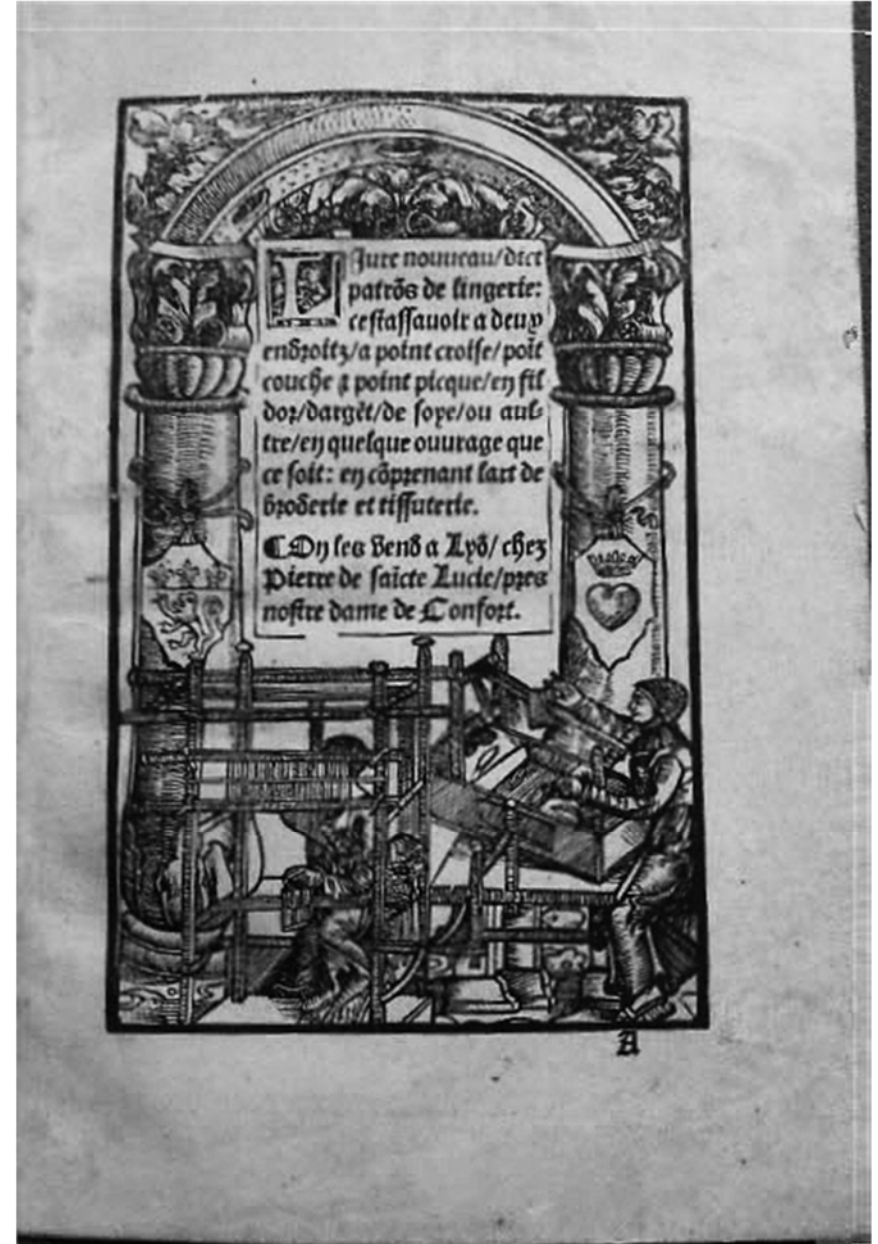 Liure nouueau/dict
patrõs de lingerie:
cestassauoir a deux
endroitz/a point croise/poĩt
couche ⁊ point picque/en fil
dor/dargẽt/de soye/ou aul-
tre/en quelque ouurage que
ce soit: en cõprenant lart de
broderie et tissuterie.
¶On les vend a Lyõ/chez
Pierre de saĩcte Lucie/pres
nostre dame de Confort.
A